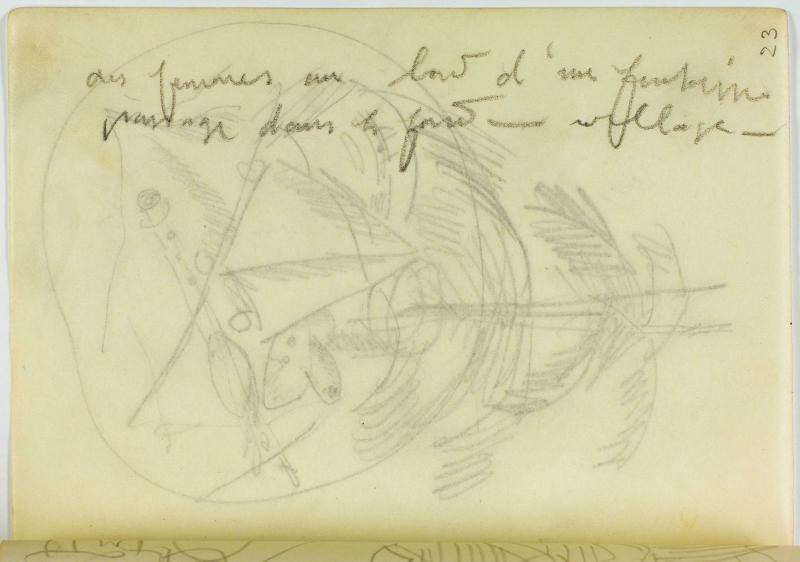 des femmes au bord d'une fontaine
passage dans la forêt — village —
23